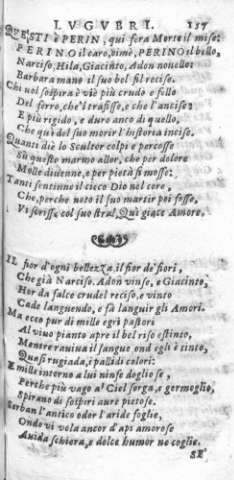 LVGVBRI. 157
QVESTI è PERIN, qui fera Morte il mise:
PERINO il caro, oimè, PERINO il bello,
Narciso, Hila, Giacinto, Adon nouello:
Barbara mano il suo bel fil recise.
Chi nol sospira è vie più crudo e fello
Del ferro, che'l trafisse, e che l'ancise:
E più rigido, e duro anco di quello,
Che quì del suo morir l'historia incise.
Quanti diè lo Scultor colpi e percosse
Sù questo marmo allor, che per dolore
Molle diuenne, e per pietà si mosse:
Tanti sentinne il cieco Dio nel core,
Che, perche noto il suo martir poi fosse,
Vi scrisse col suo stral, Quì giace Amore.
IL fior d'ogni bellezza, il fior de' fiori,
Che già Narciso, Adon vinse, e Giacinto,
Hor da falce crudel reciso, e vinto
Cade languendo, e fà languir gli Amori.
Ma ecco pur di mille egri pastori
Al viuo pianto apre il bel riso estinto,
Mentre rauiua il sangue ond egli è tinto,
Quasi rugiada, i pallidi colori:
E mille intorno a lui ninfe dogliose,
Perche più vago a'l Ciel sorga, e germoglie,
Spirano di sospiri aure pietose.
Serban l'antico odor l'aride foglie,
Ondo vi vola ancor d'aps amorose
Auida schiera, e dolce humor ne coglie.
SE